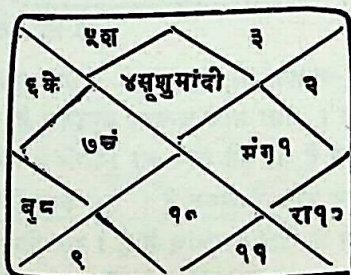 ५श ३
६के ४सूशुमांदी २
७चं मंगु१
बु८ १० रा१२
९ ११